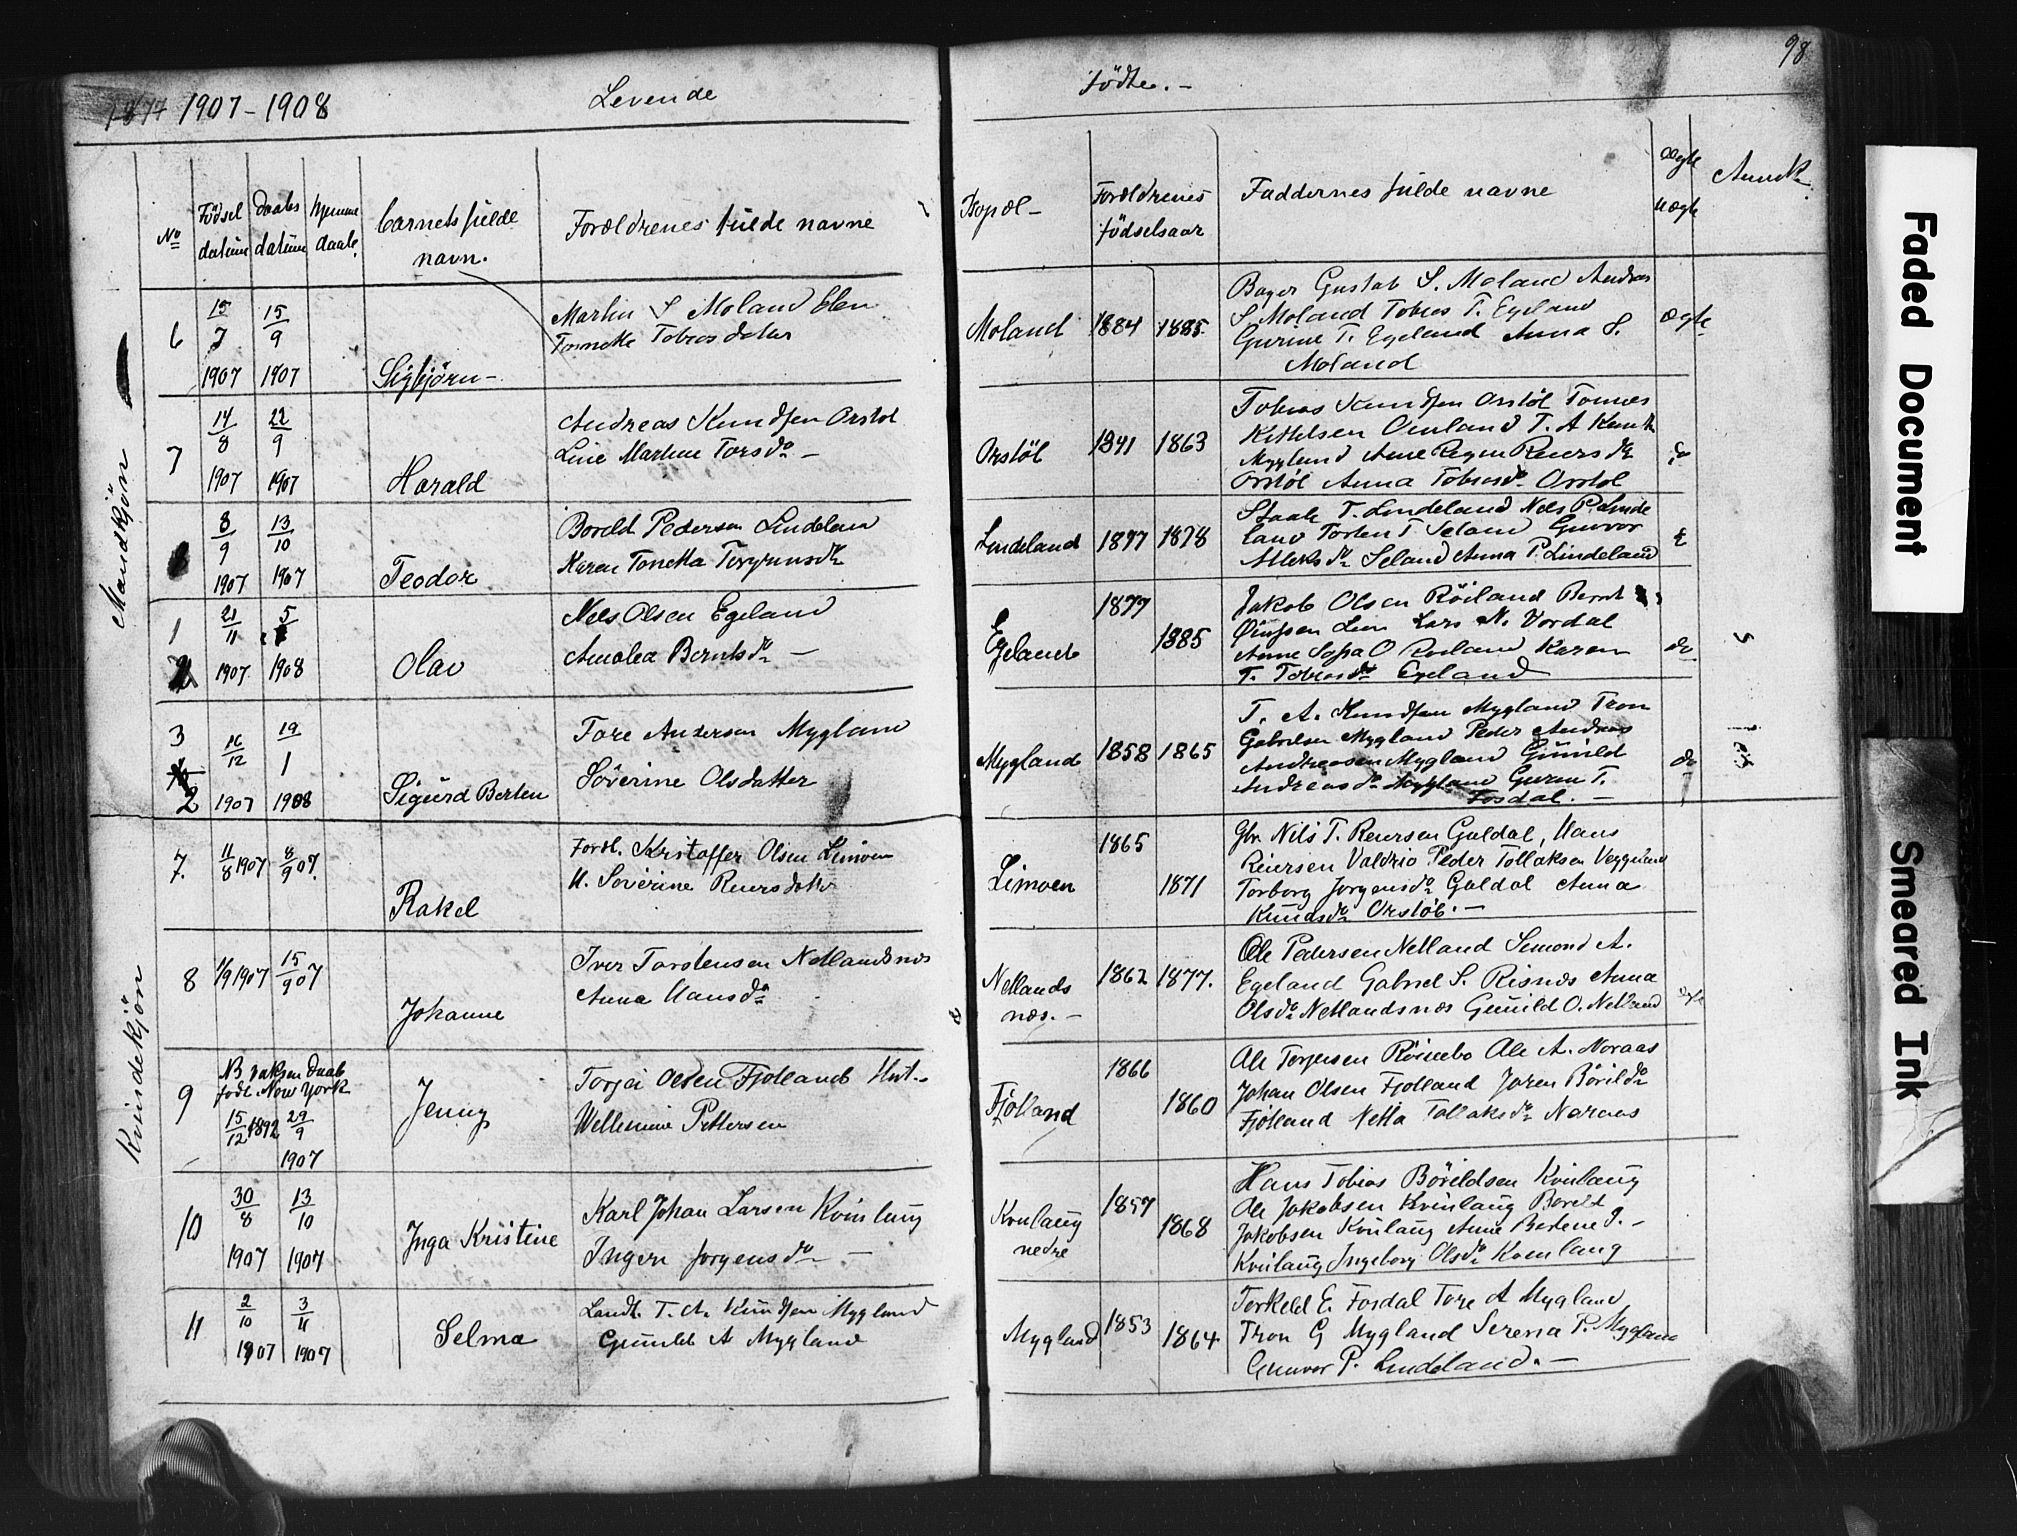 98
1877 1907-1908 Levende Födte. -
No
Födsel datum
Daabs datum
hjemme daab.
barnets fulde navn.
Forældrenes fulde navne
Bopæl -
Forældrenes födselsaar
Faddernes fulde navne
Ægte uægte
Anmk.
Mandkjön
6
15/7 1907
15/9 1907
Sigbjörn -
Martin S Moland Elen
Tomette Tobiasdatter
Moland
1884 1885.
Gustav S. Moland Andreas
S. Moland Tobias T. Egeland
Gurine T. Egeland Anna S.
Moland
Ægte
7
14/8 1907
22/9 1907
Harald
Andreas Knudsen Orstöl
Line Martine Torsdr -
Orstöl
1841 1863
Tobias Knudsen Orstöl Tönnes
Ketelsen Omland T. A Knuts
Mygland Ane Regine Reiersdr
Orstöl Anna Tobiasdr Orstöl
do
8/9 1907
13/10 1907
Teodor
Boreld Pedersen Lindeland
Karen Tonetta Torgrimsdr
Lindeland
1877 1878
Staale T. Lindeland Nels P. Linde
land Torten T Seland Gunvor
Atleksdr Seland Anna P. Lindeland
1
2
21/11 1907
5/1 1908
Olav
Nels Olsen Egeland
Amalea Berntsdr -
Egeland
1877
1885
Jakob Olsen Röiland Bernt
Lars N. Vordal
Anne Sofia O Roiland Karen
T. Tobiasdr Egeland
do
3
2
16/12 1907
19/1 1908
Sigurd Berten
Tore Andersen Mygland
Söverine Olsdatter
Mygland
1858 1865
T. A. Knudsen Mygland Tron
Gabrielsen Mygland Peder Andreas
Andreasen Mygland Gunild
Andreasdr Mygland Guren T.
Fosdal. -
do
Kvindekjön
7.
11/8 1907
8/9 07.
Rakel
Fordl. Kristoffer Olsen Limoen
H. Soverine Reiersdatter
Limoen
1865
1871
Gbr. Nils T. Reiersen Galdal, Hans
Reiersen Valdrio Peder Tollaksen Veggeland
Torborg Jorgensdr Galdal Anna
Knudsdr Orstöl. -
8
1/9 1907
15/9 07
Johanne
Iver Torstensen Netlandsnes
Anna Hansdr
Netlands
næs. -
1862 1877.
Ole Pedersen Netland Simond A.
Egeland Gabriel S. Risnes Anna
Olsdr Netlandsnæs Gunild O. Netland
Ægte
9
NB Voksen Daab
födt. New York
15/12 1892 29/9
1907
Jenny
Torjei Olsen Fjotland Hust.
Wellemine Pettersen
Fjotland
1866
1860
Ole Torjersen Röinebo Ole A. Noraas
Johan Olsen Fjotland Joren Börildr
Fjotland Netta Tollaksdr Noraas
10
30/8 1907
13/10 1907
Inga Kristine
Karl Johan Larsen Kvinlaug
Ingeri Jorgensdr -
Kvinlaug
nedre
1857
1868
Hans Tobias Böreldsen Kvinlaug
Ole Jakobsen Kvinlaug Boreld
Jakobsen Kvinlaug Anne Bertine J. -
Kvinlaug Ingeborg Olsdr Kvinlaug
11
2/10 1907
3/11 1907
Selma
Landh. T. A. Knudsen Mygland
Gunild A Mygland
Mygland
1853
1864
Terkeld E. Fosdal Tore A Mygland
Tron G Mygland Serena P. Mygland
Gunvor P. Lindeland. -
Faded Document
Smeared Ink